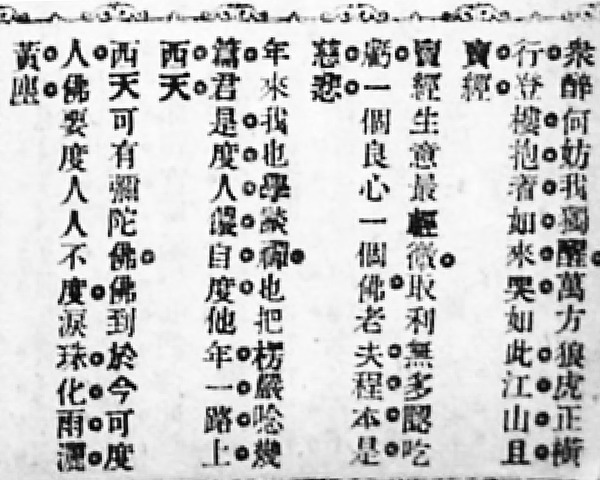 衆醉何妨我獨醒萬方狼虎正橫
行登樓抱著如來哭如此江山且
賣經
賣經生意最輕微取利無多認吃
虧一個良心一個佛老夫程本是
慈悲
年來我也學談禪也把楞嚴唸幾
篇君是度人儂自度他年一路上
西天
西天可有彌陀佛佛到於今可度
人佛要度人人不度淚珠化雨灑
黃塵